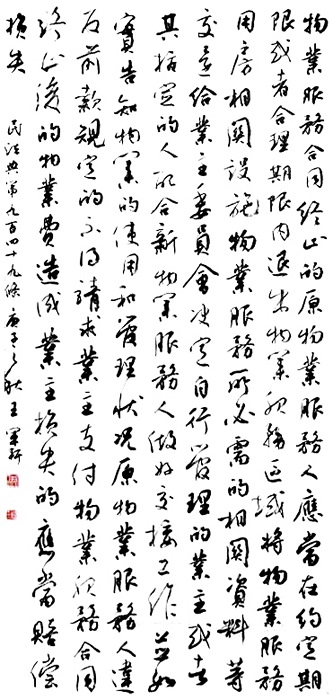 物業服務合同終止的原物業服務人應當在約定期
限或者合理期限内退出物業服務區域將物業服務
用房相關設施物業服務所必需的相關資料等
交還給業主委員會決定自行管理的業主或者
其指定的人配合新物業服務人做好交接工作並如
實告知物業的使用和管理狀況原物業服務人違
反前款規定的不得請求業主支付物業服務合同
終止後的物業費造成業主損失的應當賠償
損失
民法典第九百四十九條 庚子之秋 王軍